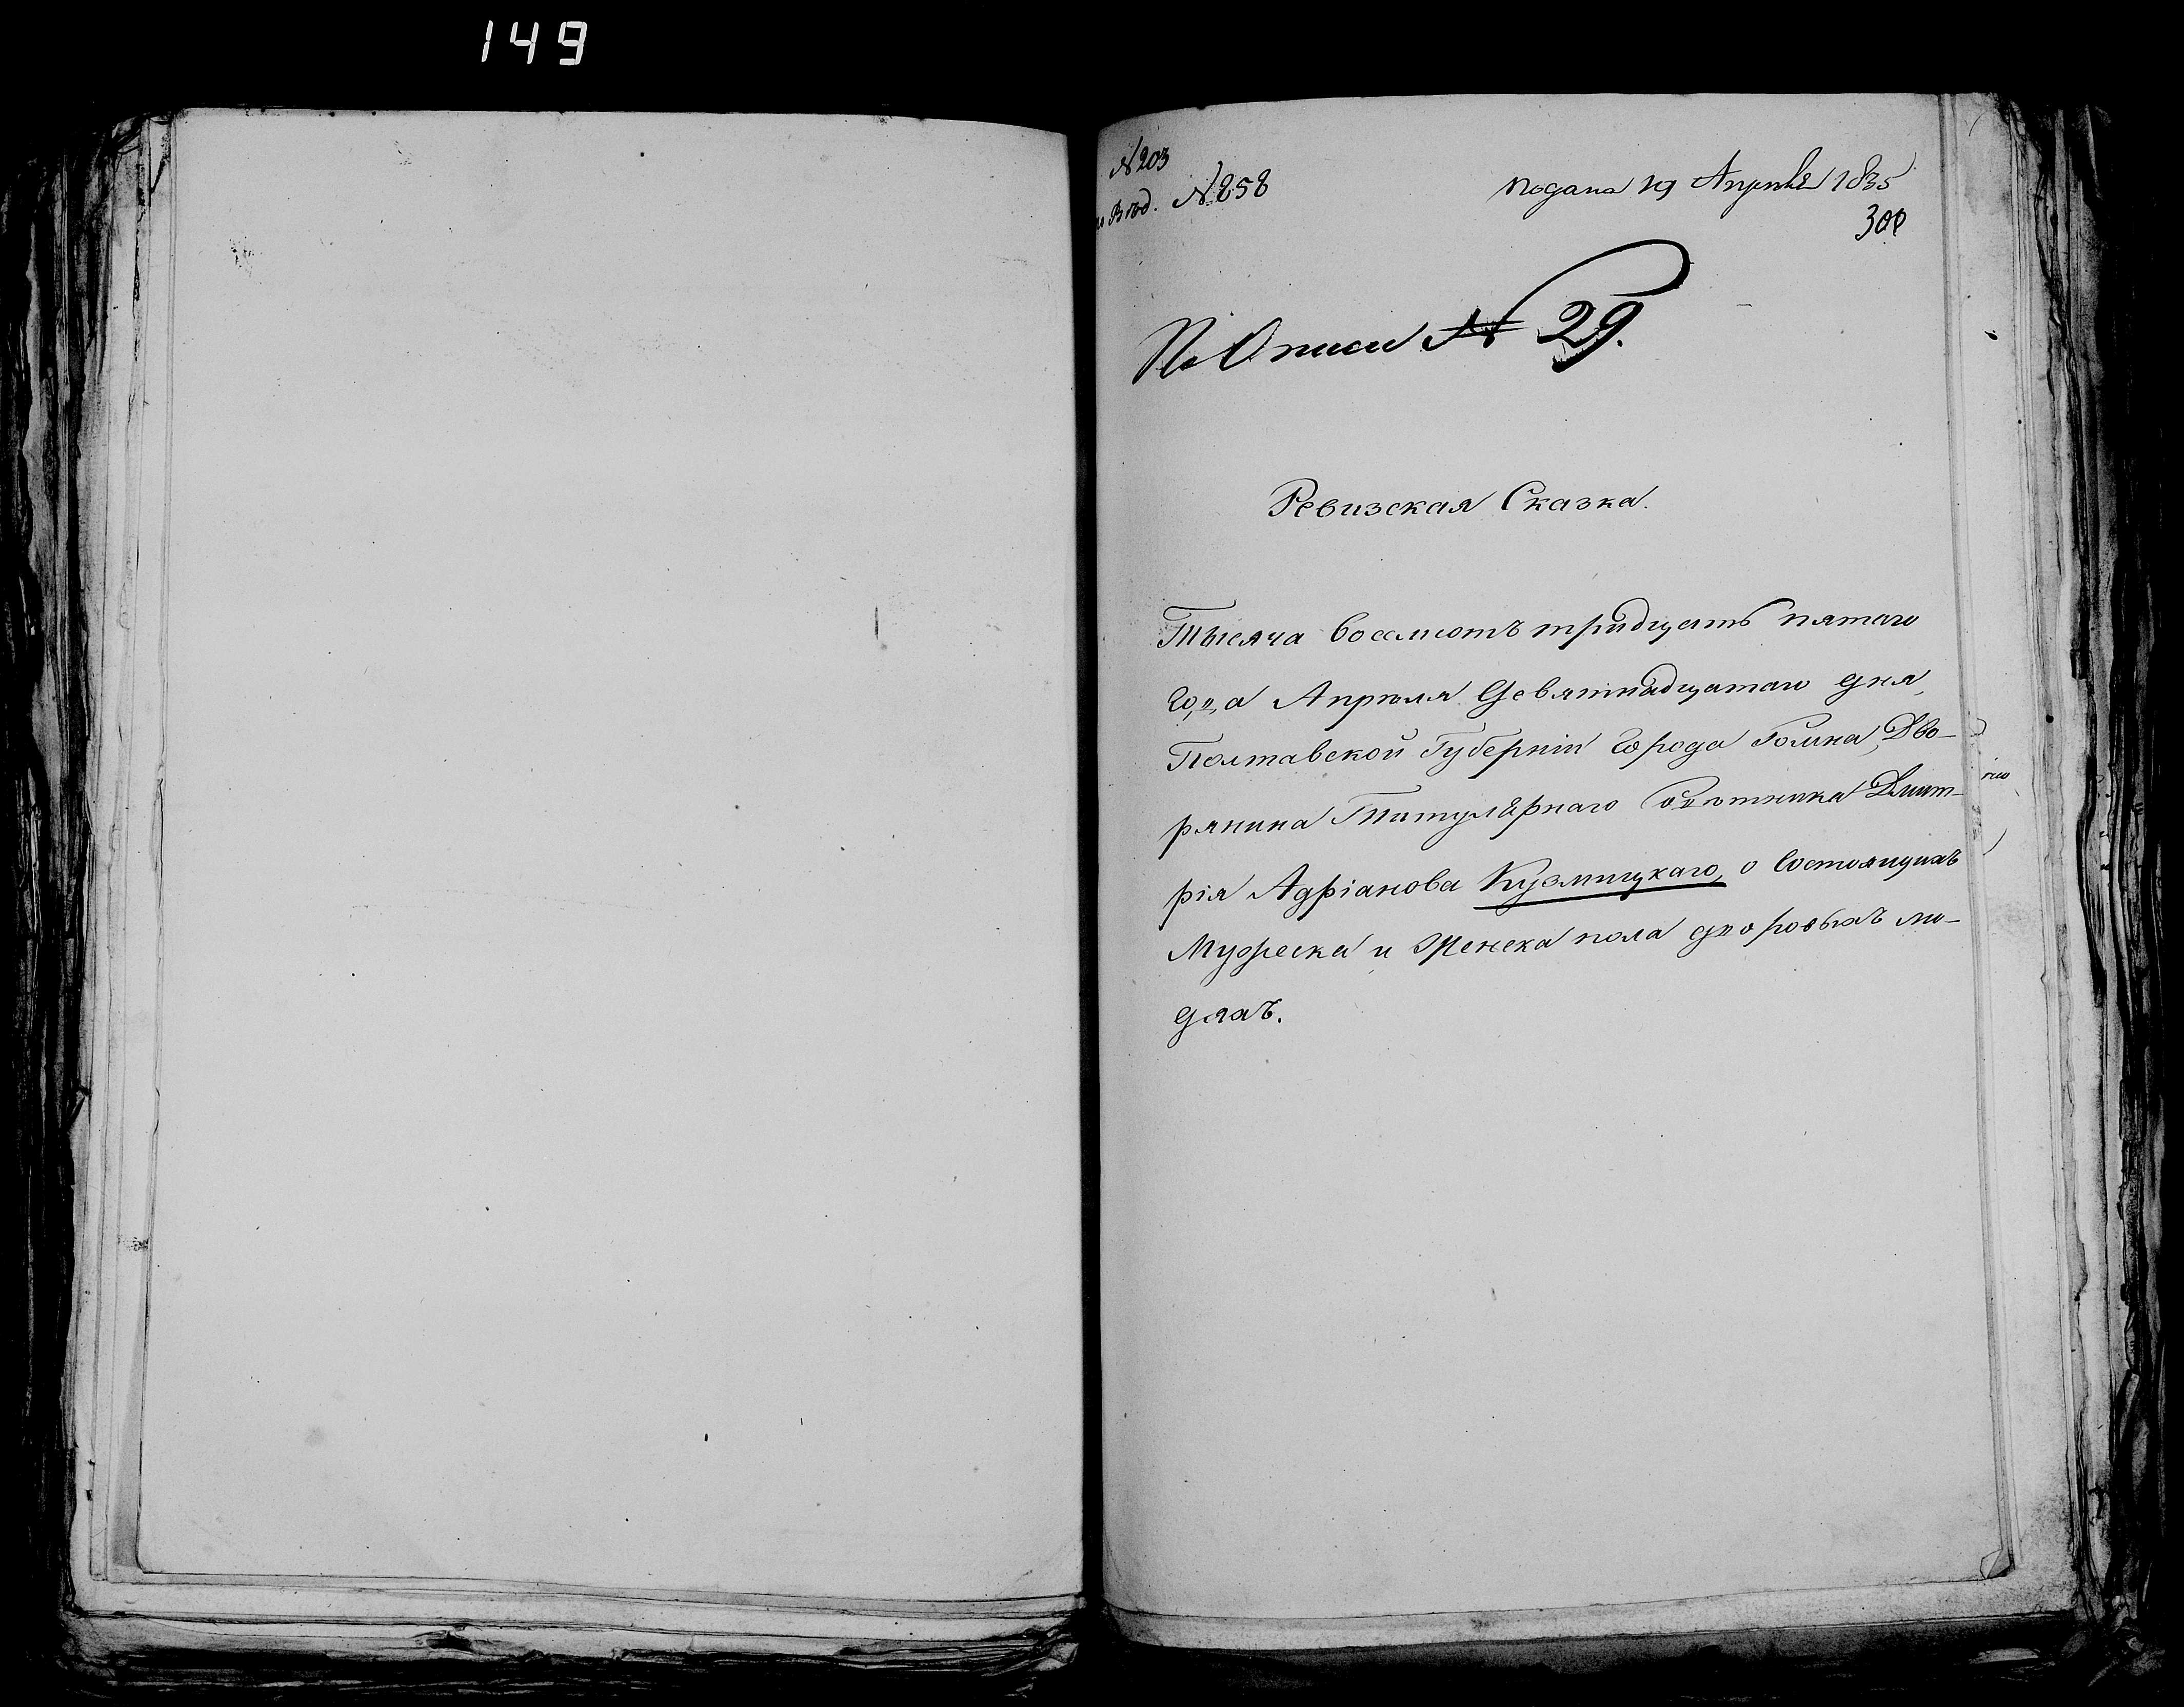 149
№ 203
по Вѣд. № 258
подана 19 Апрѣля 1835
300
По Описи № 29.
Ревизская Сказка.
Тысяча восемсотъ тридцать пятаго
года Апрѣля девятнадцатаго дня,
Полтавской Губерніи города Ромна, Дво-
рянина Титулярнаго Совѣтника Дмит-
рія Адріанова Кузмицкаго, о состоящихъ
Мужеска и Женска пола дворовыхъ лю-
дяхъ.